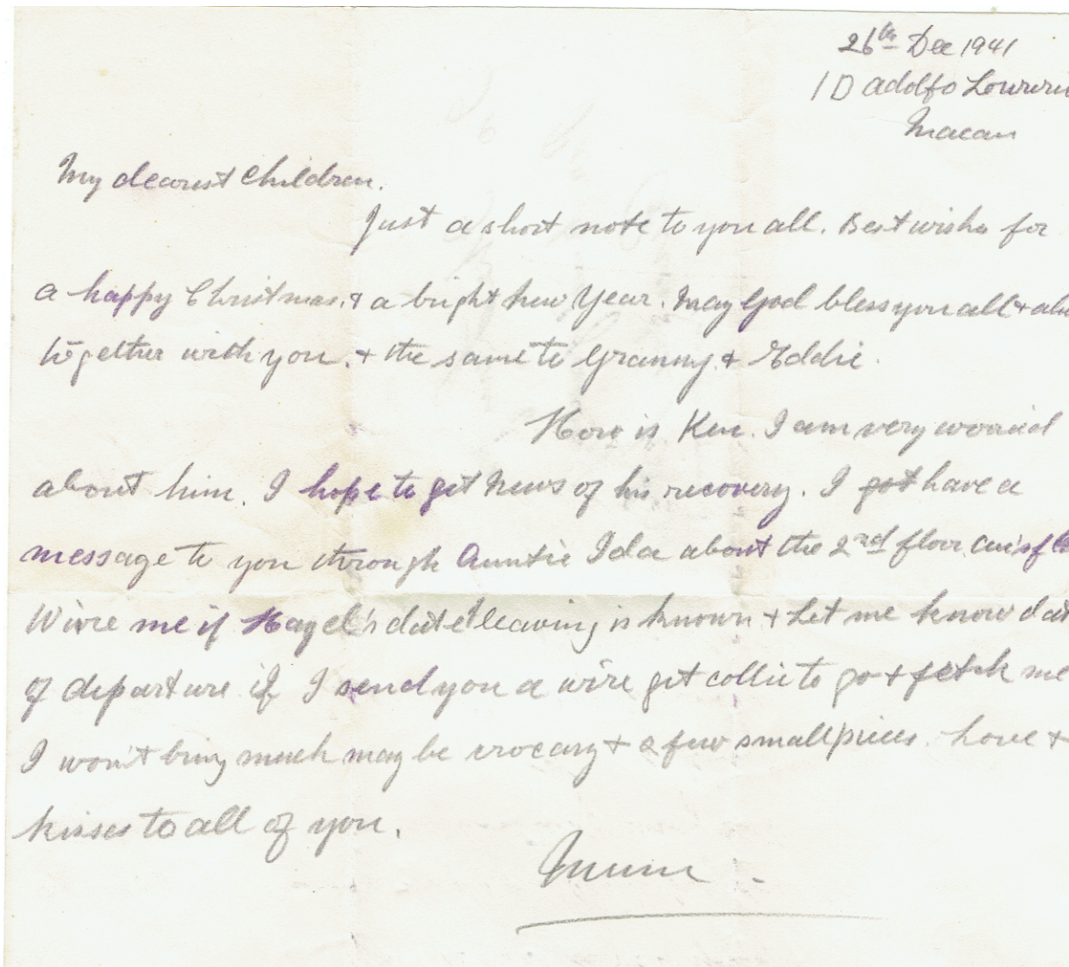 26th Dec 1941
1D adolfo
Macau
My dearest Children.
Just a short note to you all. Best wishes for
a happy Christmas. & a bright New Year. May God bless you all &
together with you. & the same to Granny. & Eddie.
How is Ken. I am very worried
about him. I hope to get news of his recovery. I got have a
message to you through Auntie Ida about the 2nd floor
Wire me if Hazel's date leaving is known & let me know
of departure if I send you a wire get collie to go & fetch me
I won't bring much may be crocery & a few small pieces. Love &
kisses to all of you.
Mum